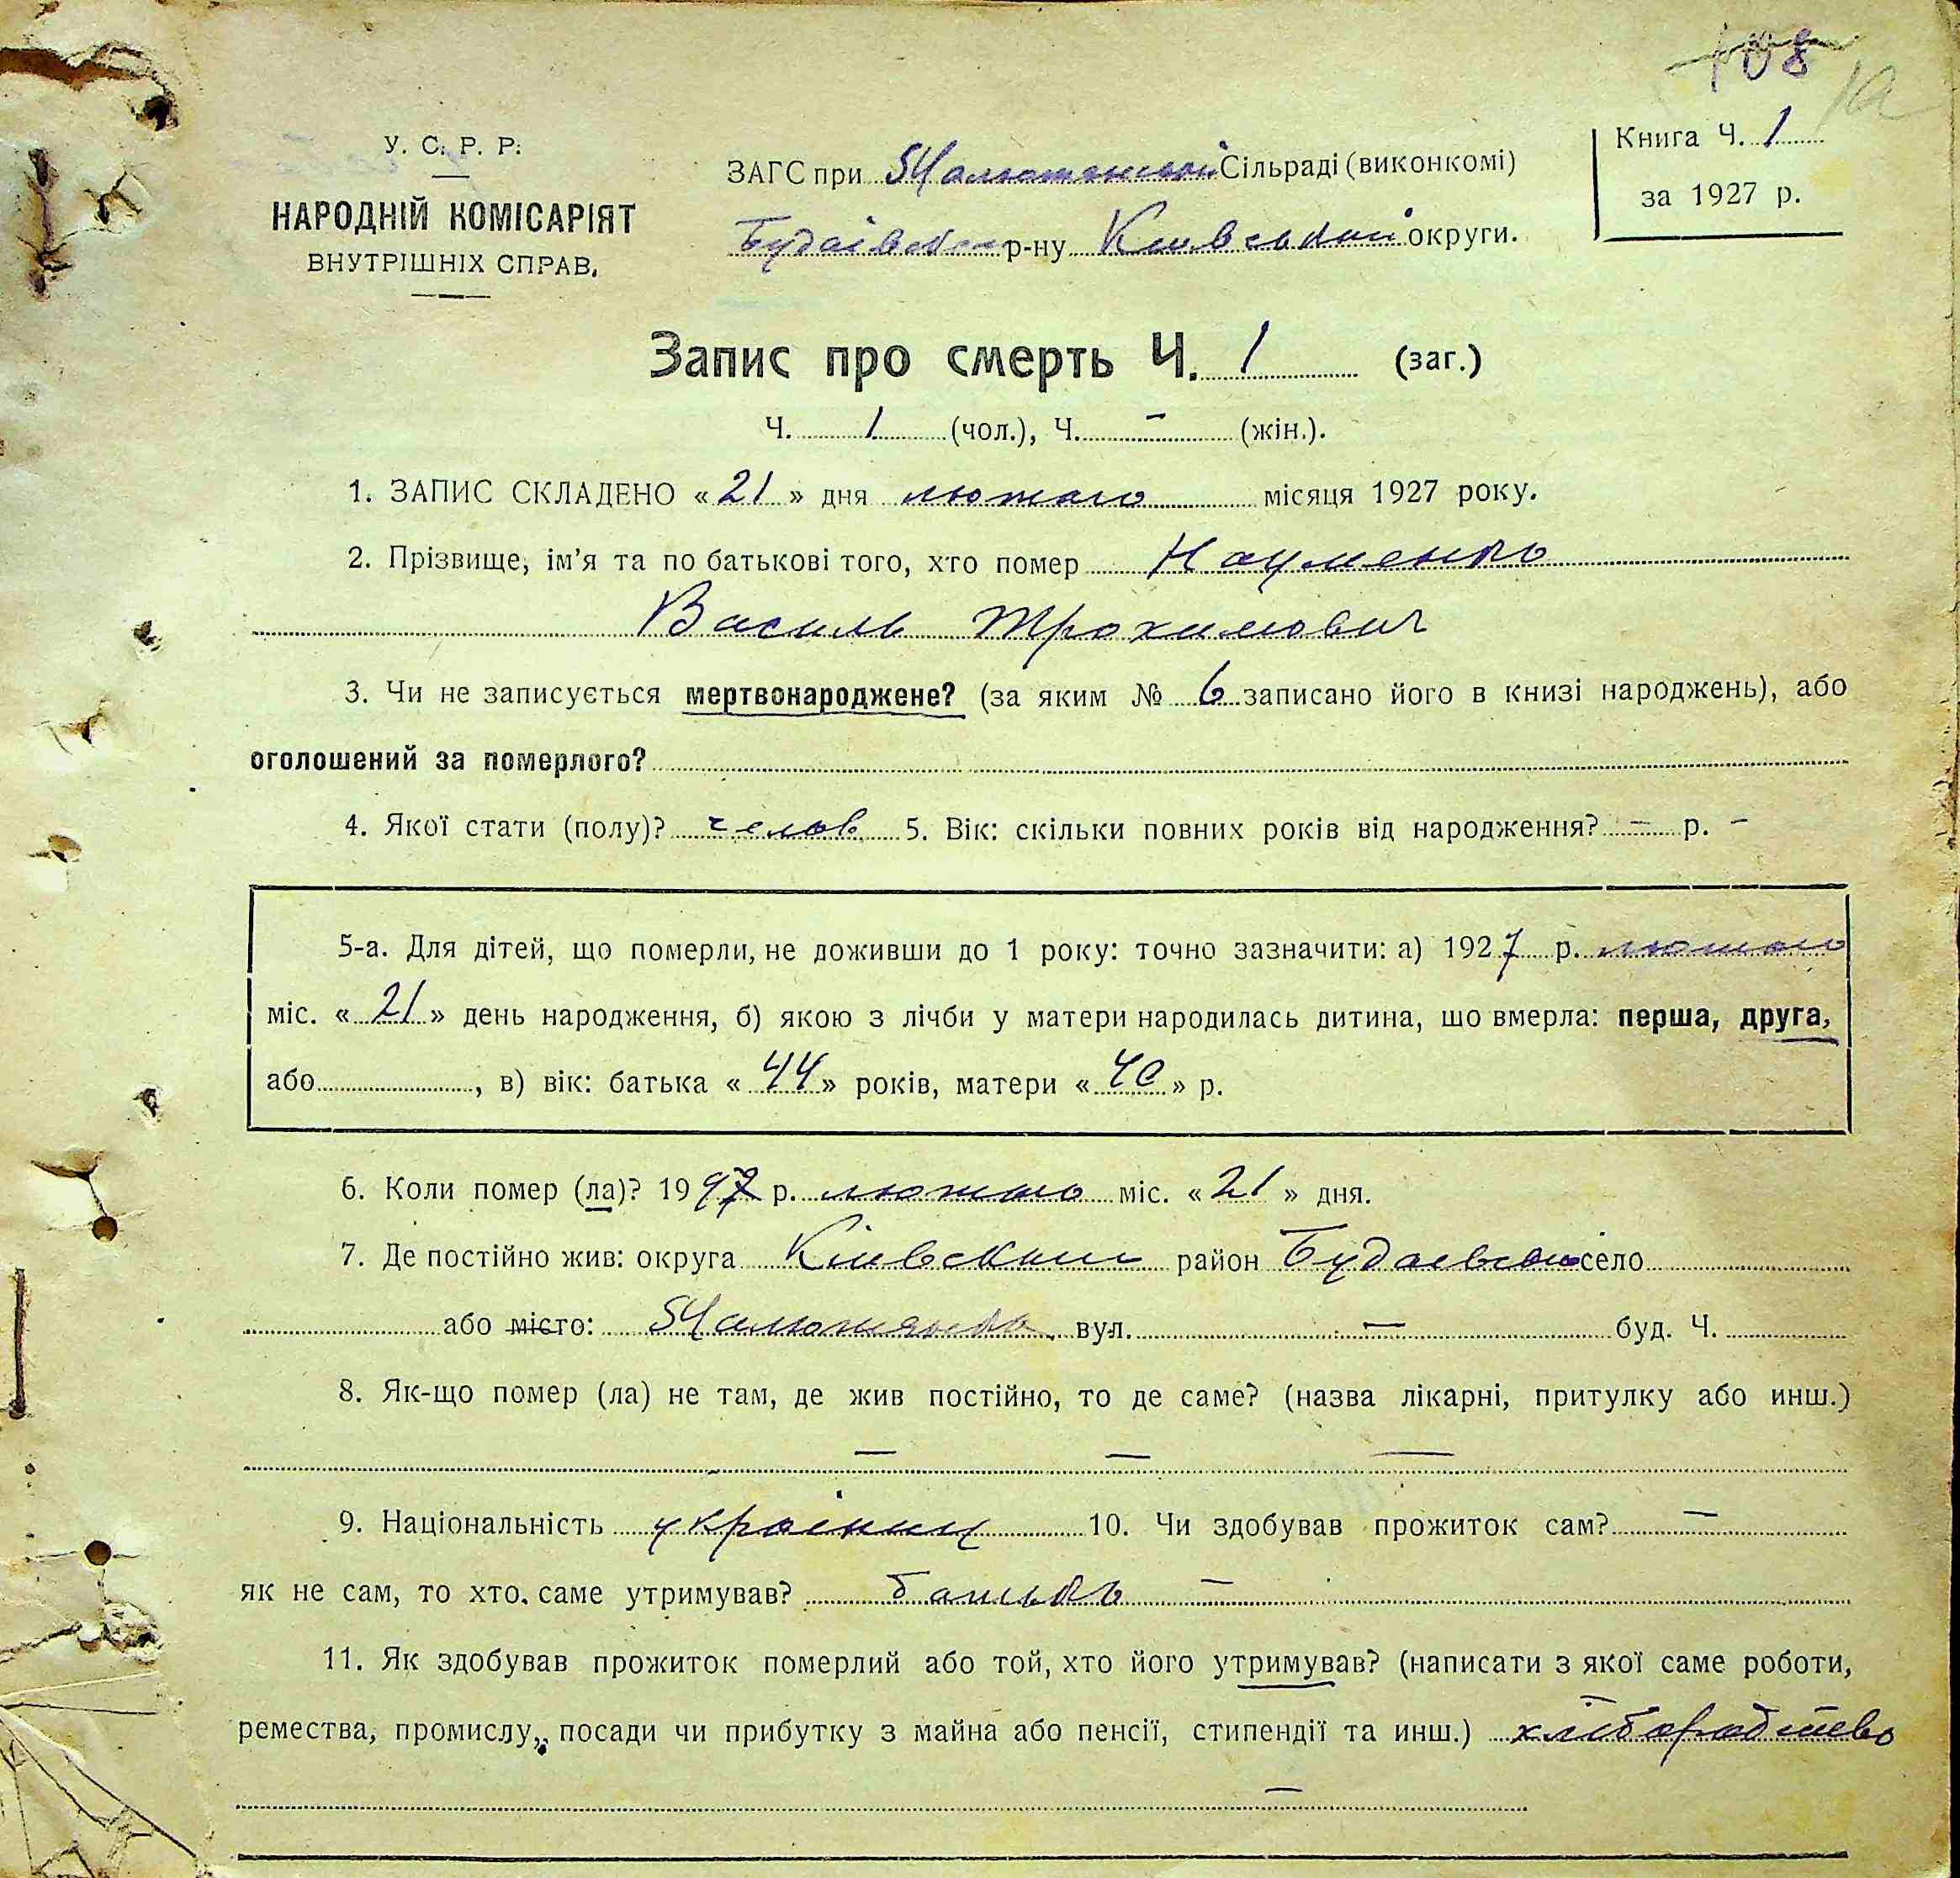 108
1а
У. С. Р. Р.
НАРОДНІЙ КОМІСАРІЯТ
ВНУТРІШНІХ СПРАВ.
ЗАГС при Малютянській Сільраді (виконкомі)
Будаївськ р-ну Київської округи.
Книга Ч. 1
за 1927 р.
Запис про смерть Ч. 1 (заг.)
Ч. 1 (чол.), Ч. – (жін.).
1. ЗАПИС СКЛАДЕНО « 21 » дня лютого місяця 1927 року.
2. Прізвище, ім'я та по батькові того, хто помер Науменко
Василь Трохимович
3. Чи не записується мертвонароджене? (за яким № 6 записано його в книзі народжень), або
оголошений за померлого?
4. Якої стати (полу)? челов 5. Вік: скільки повних років від народження? – р. –
5-а. Для дітей, що померли, не доживши до 1 року: точно зазначити: а) 1927 р. лютого
міс. « 21 » день народження, б) якою з лічби у матери народилась дитина, що вмерла: перша, друга,
або , в) вік: батька « 44 » років, матери « 40 » р.
6. Коли помер (ла)? 1927 р. лютого міс. « 21 » дня.
7. Де постійно жив: округа Київский район Будаевский село
або місто: Малютянка вул. – буд. Ч.
8. Як-що помер (ла) не там, де жив постійно, то де саме? (назва лікарні, притулку або инш.)
– – –
9. Національність українец 10. Чи здобував прожиток сам? –
як не сам, то хто саме утримував? батько –
11. Як здобував прожиток померлий або той, хто його утримував? (написати з якої саме роботи,
ремества, промислу, посади чи прибутку з майна або пенсії, стипендії та инш.) хліборобство
–